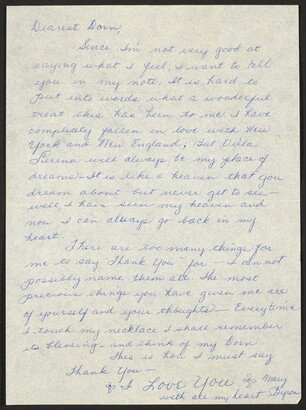 Dearest Dorn,
Since I'm not very good at
saying what I feel, I want to tell
you in my note. It is hard to
put into words what a wonderful
treat this has been to me I have
completly fallen in love with New
York and New England; But Villa
Serena will always be my place of
dreams - It is like a heaven that you
dream about but never get to see -
well I have seen my heaven and
now I can always go back in my
heart.
There are too many things for
me to say "Thank You" for - I can not
possibly name them all. The most
precious things you have given me are
of yourself and your thoughts - Everytime
I touch my necklace I shall remember
its blessing - and think of my Dorn
This is how I must say
Thank You -
I LOVE YOU
Mary
with all my heart